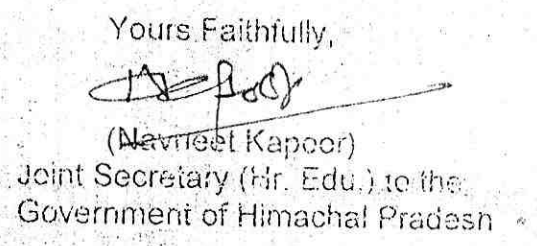 Yours Faithfully,
(Navneet Kapoor)
Joint Secretary (Hr. Edu.) to the
Government of Himachal Pradesh